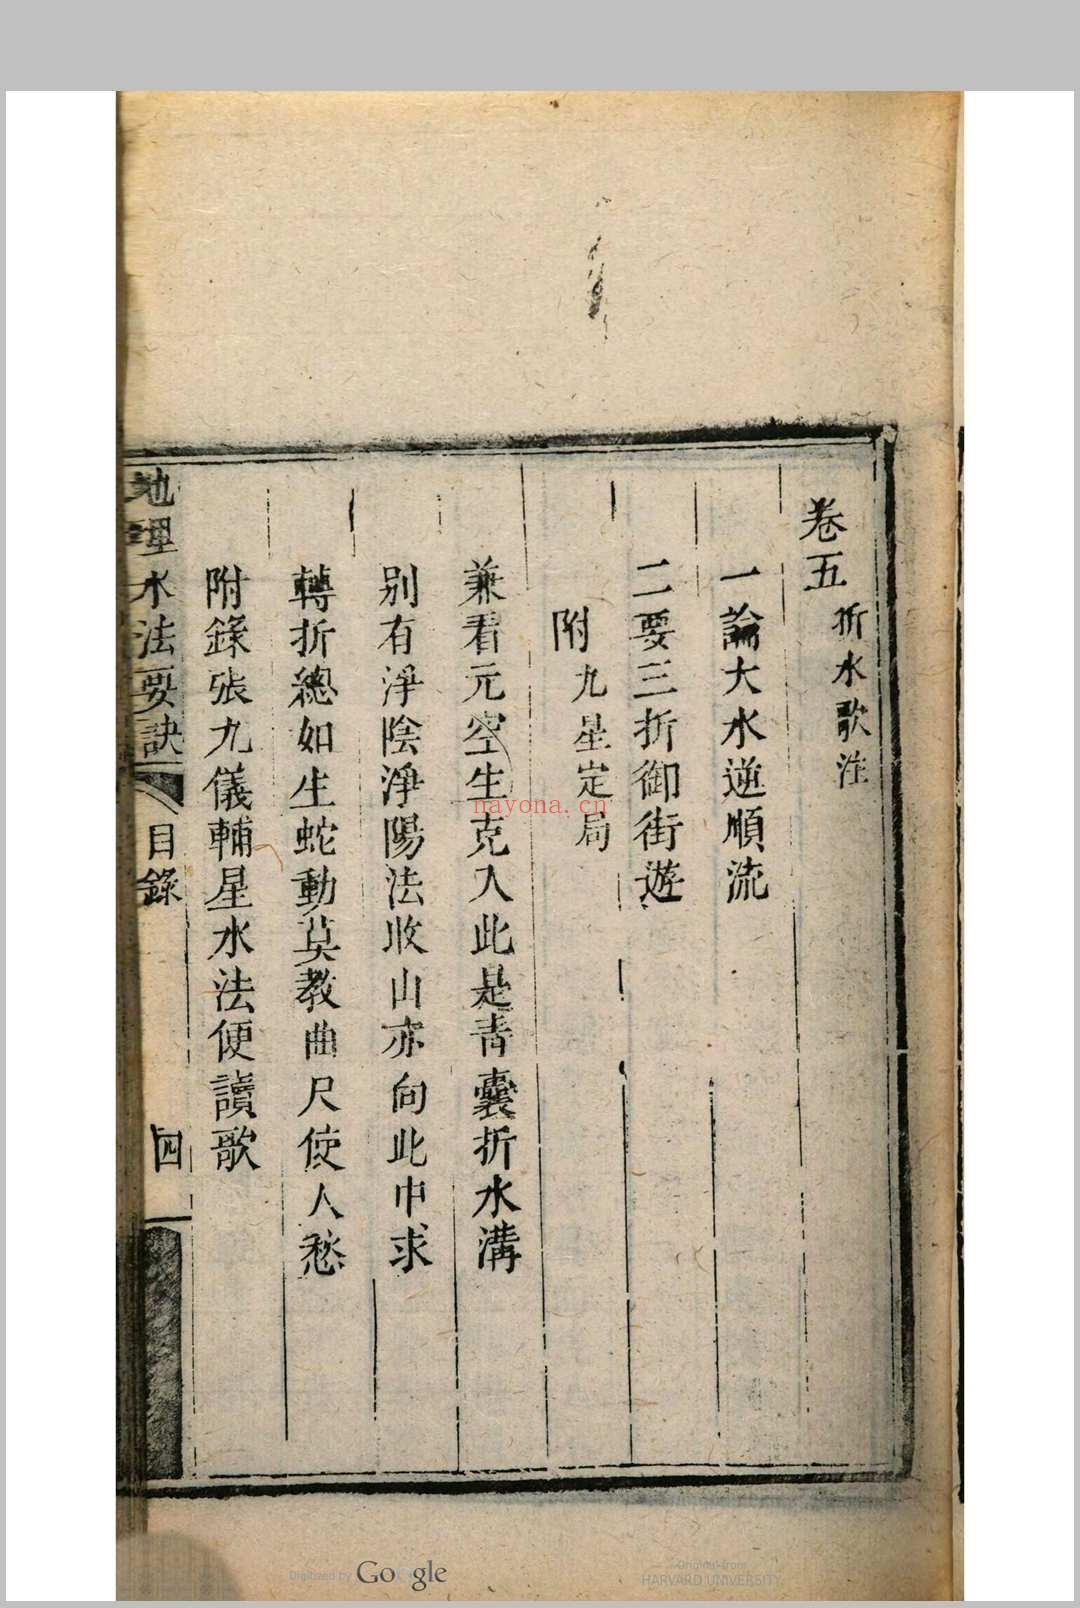 卷五 折水歌注
一論大水逆順流
二要三折御街遊
附九星定局
兼看元空生克入此是青囊折水溝
別有淨陰淨陽法收山亦向此中求
轉折總如生蛇動莫教曲尺使人愁
附錄張九儀輔星水法便讀歌
地理水法要訣 目錄 四
nayona.cn
Digitized by Google
Original from
HARVARD UNIVERSITY